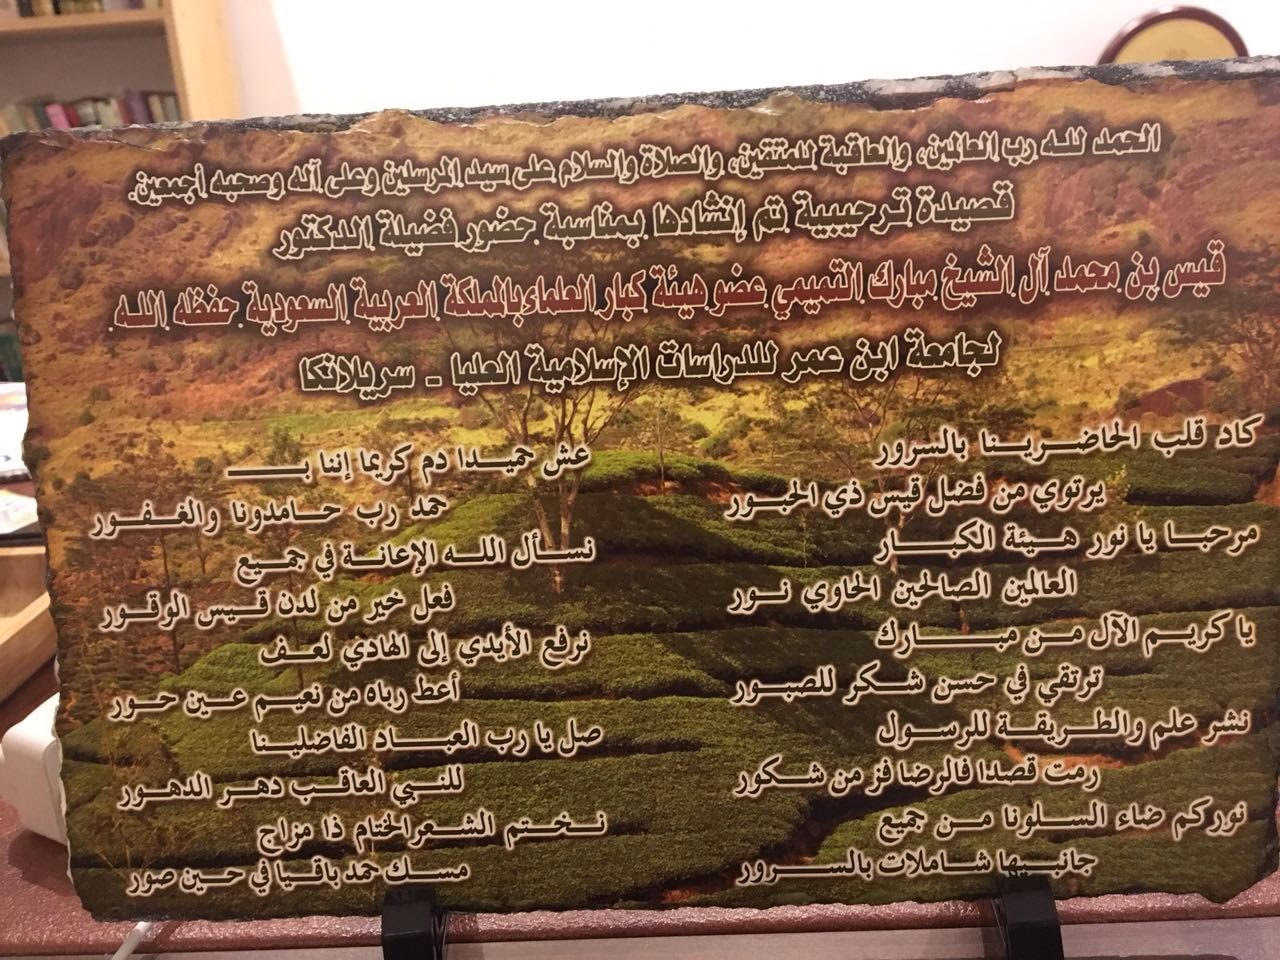 الحمد لله رب العالمين، والعاقبة للمتقين، والصلاة والسلام على سيد المرسلين وعلى آله وصحبه أجمعين.
قصيدة ترحيبية تم إنشادها بمناسبة حضور فضيلة الدكتور
قيس بن محمد آل الشيخ مبارك التميمي عضو هيئة كبار العلماء بالمملكة العربية السعودية حفظه الله
لجامعة ابن عمر للدراسات الإسلامية العليا - سريلانكا
كاد قلب الحاضرينا بالسرور
يرتوي من فضل قيس ذي الحبور
مرحبا يا نور هيئة الكبار
العالمين الصالحين الحاوي نور
يا كريم الآل من مبارك
ترتقي في حسن شكر للصبور
نشر علم والطريقة للرسول
رمت قصدا فالرضا فز من شكور
نوركم ضاء السلونا من جميع
جانبيها شاملات بالسرور
عش حميدا دم كريما إننا بـ
حمد رب حامدونا والغفور
نسأل الله الإعانة في جميع
فعل خير من لدن قيس الوقور
نرفع الأيدي إلى الهادي لعف
أعط رباه من نعيم عين حور
صل يا رب العباد الفاضلينا
للنبي العاقب دهر الدهور
نختم الشعر الختام ذا مزاج
مسك حمد باقيا في حين صور